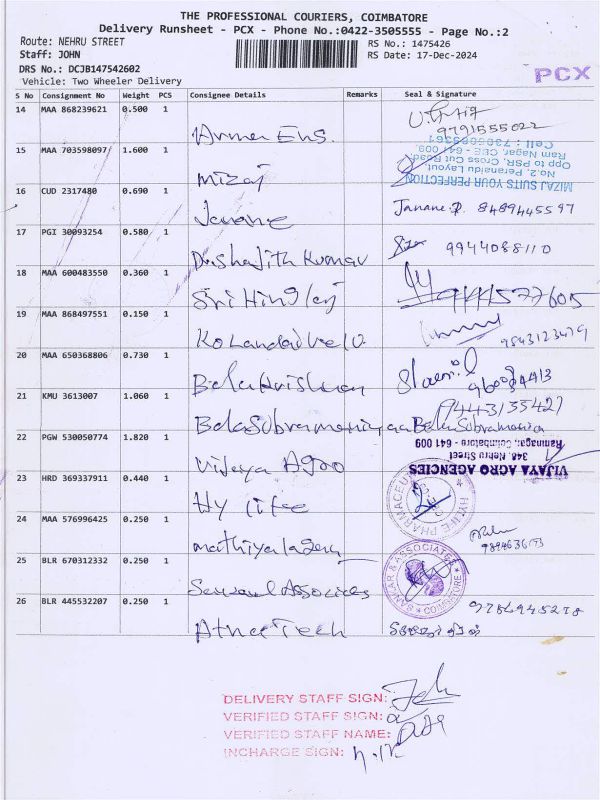 THE PROFESSIONAL COURIERS, COIMBATORE
Delivery Runsheet - PCX - Phone No.:0422-3505555 - Page No.:2
Route: NEHRU STREET
RS No.: 1475426
Staff: JOHN
RS Date: 17-Dec-2024
DRS No.: DCJB147542602
Vehicle: Two Wheeler Delivery
PCX
S No Consignment No Weight PCS Consignee Details Remarks Seal & Signature
14 MAA 868239621 0.500 1
9791555022
15 MAA 703598097 1.600 1
Mizaj
MIZAJ SUITS YOUR PERFECTION
No.2, Perianaidu Layout,
Opp to PSR, Cross Cut Road,
Ram Nagar, CBE - 641 009.
16 CUD 2317480 0.690 1
Janane
Janane.P. 8489445597
17 PGI 30093254 0.580 1
Kumar
9944088110
18 MAA 600483550 0.360 1
Sri
19 MAA 868497551 0.150 1
Kolandaivelu
20 MAA 650368806 0.730 1
Balakrishnan
21 KMU 3613007 1.060 1
Balasubramaniyam
Balasubramania
22 PGW 530050774 1.820 1
Vijaya Agro
VIJAYA AGRO AGENCIES
348, Nehru Street
Ramnagar, Coimbatore - 641 009
23 HRD 369337911 0.440 1
Hy life
HYLIFE PHARMACEU
24 MAA 576996425 0.250 1
25 BLR 670312332 0.250 1
Associates
SANKAR & ASSOCIATES
COIMBATORE
26 BLR 445532207 0.250 1
Tech
DELIVERY STAFF SIGN:
VERIFIED STAFF SIGN:
VERIFIED STAFF NAME:
INCHARGE SIGN: